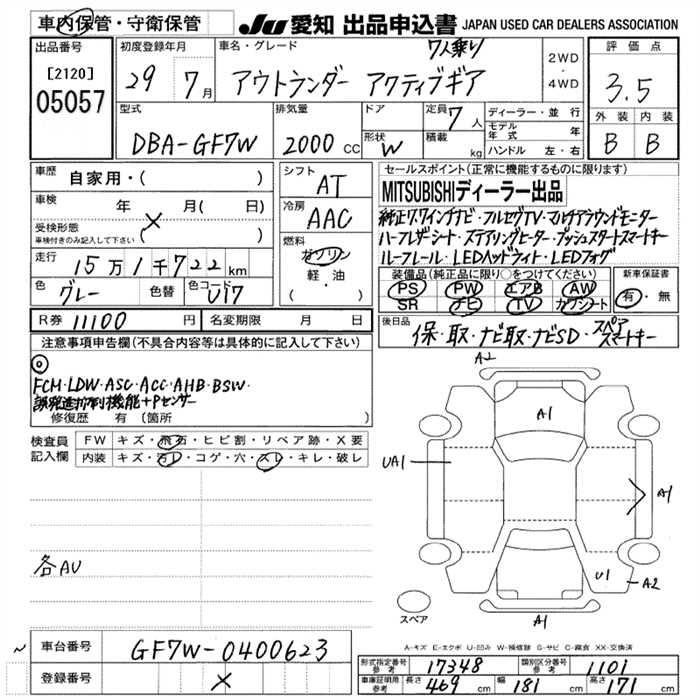 車内保管・守衛保管
JU 愛知 出品申込書 JAPAN USED CAR DEALERS ASSOCIATION
出品番号
[2120]
05057
初度登録年月
29 7月
車名・グレード
7人乗り
アウトランダー アクティブギア
2WD
・
4WD
評価点
3.5
外装 内装
B B
型式
DBA-GF7W
排気量
2000 CC
ドア
形状 W
定員 7人
積載 kg
ディーラー・並行
モデル年式 年
ハンドル 左・右
車歴
自家用・( )
車検 年 月( 日)
×
受検形態
車検付きのみ記入して下さい ( )
走行 15万1千722km
色 グレー 色替 色コード U17
シフト
AT
冷房
AAC
燃料
ガソリン
軽・油
( )
セールスポイント(正常に機能するものに限ります)
MITSUBISHIディーラー出品
純正7.7インチナビ・フルセグTV・マルチアラウンドモニター
ハーフレザーシート・ステアリングヒーター・プッシュスタートスマートキー
ルーフレール・LEDヘッドライト・LEDフォグ
装備品(純正品に限り○をつけてください)
PS PW エアB AW
SR ナビ TV カワシート
新車保証書
有・無
R券 11100 円 名変期限 月 日
後日品
保・取・ナビ取・ナビSD・スペアスマートキー
注意事項申告欄(不具合内容等は具体的に記入して下さい)
◎
FCM・LDW・ASC・ACC・AHB・BSW・
誤発進抑制機能+Pセンサー
修復歴 有 (箇所 )
検査員記入欄
FW キズ・飛石・ヒビ割・リペア跡・X要
内装 キズ・汚レ・コゲ・穴・スレ・キレ・破レ
各AU
A2
A1
UA1
A1
U1
A2
A1
スペア
A-キズ E-エクボ U-凹み W-補修跡 S-サビ C-腐食 XX-交換済
~
車台番号 GF7W-0400623
登録番号 ×
型式指定番号 参考 17348 類別区分番号 参考 1101
車庫証明用 参考 長さ 469 cm 幅 181 cm 高さ 171 cm